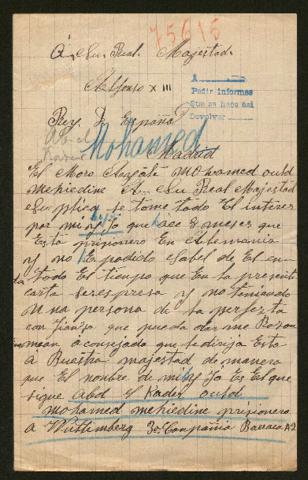 75615
A Su Real Magestad
Alfonso XIII
A
Pedir informes
Que se hace asi
Devolver
Rey D España
Abd el
Kader
Mohamed
Madrid
El Moro Argelí Mohamed ould
Mehiedine A Su Real Majestad
Suplica se tome todo El interés
por mi hijo que hace 8 meses que
Esta prisionero En Alemania
y no E podido sabel de El en
todo El tiempo que En la presente
carta Serespresa y no teniendo
una persona de la perfecta
confianza que pueda darme Razon
mean aconsejado que se dirija Esta
á Buestra magestad de manera
que El nonbre de mi hijo Es El que
sigue Abd El Kader ould
Mohamed mehiedine prisionero
a Wurtemberg 3e Conpañia Barraca